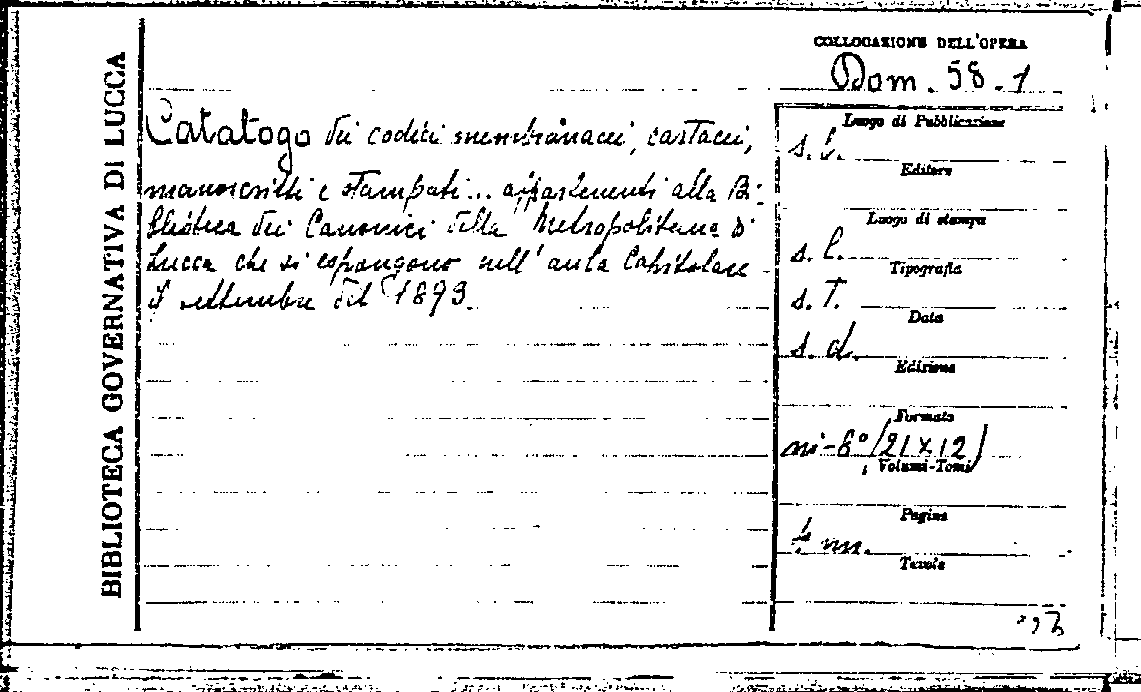 BIBLIOTECA GOVERNATIVA DI LUCCA
COLLOCAZIONE DELL'OPERA
Dom. 58.1
Catalogo dei codici membranacei, cartacei,
manoscritti e stampati... appartenenti alla Bi-
blioteca dei Canonici della Metropolitana di
Lucca che si espongono nell'aula Capitolare
settembre del 1893.
Luogo di Pubblicazione
s. l.
Editore
Luogo di stampa
s. l.
Tipografia
s. T.
Data
s. d.
Edizione
Formato
in-8° (21x12)
Volumi-Tomi
Pagine
nn.
Tavole